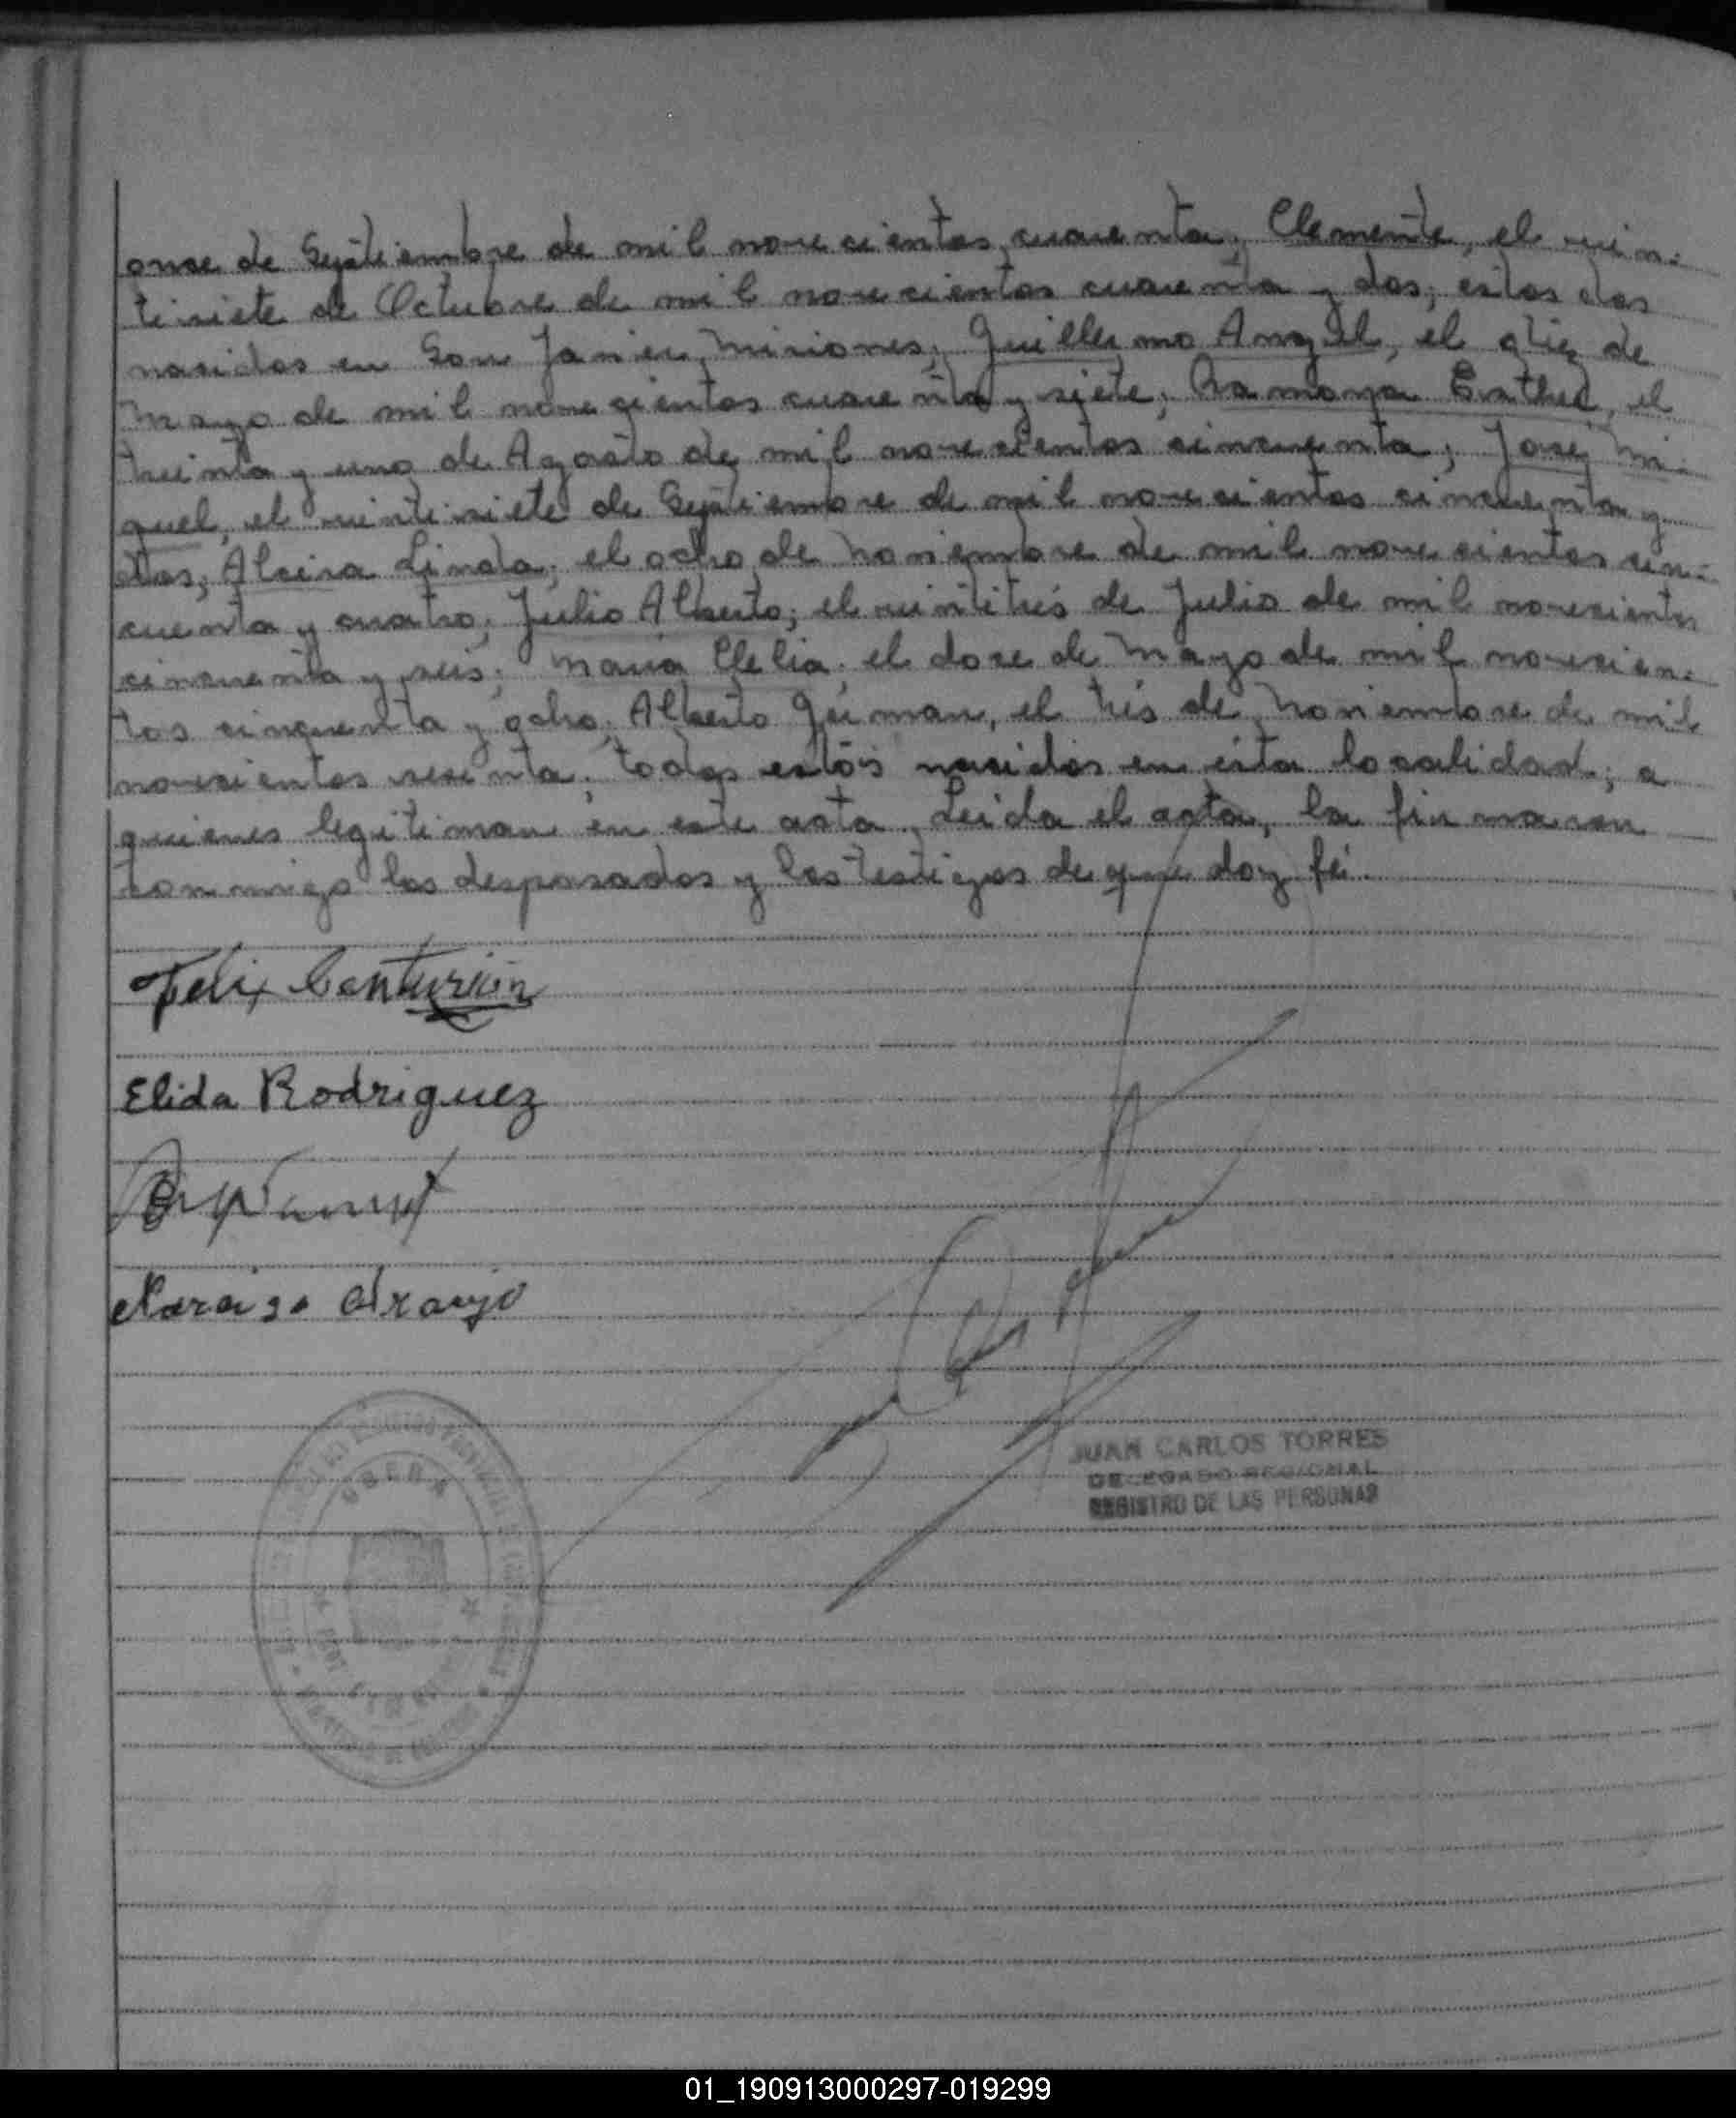 onse de Septiembre de mil novecientos cuarenta; Clemente, el vein-
tisiete de Octubre de mil novecientos cuarenta y dos; estos dos
nasidos en San Javier, Misiones; Guillermo Angel, el diez de
Mayo de mil novecientos cuarenta y siete; Ramona Esther, el
treinta y uno de Agosto de mil novecientos cincuenta; José Mi-
guel, el veintisiete de Septiembre de mil novecientos cincuenta y
dos; Alcira Linda; el ocho de Noviembre de mil novecientos cin-
cuenta y cuatro; Julio Alberto; el veintitrés de Julio de mil novecientos
cincuenta y seis; Maria Clelia; el doce de Mayo de mil novecien-
tos cincuenta y ocho; Alberto Germán, el trés de Noviembre de mil
novecientos sesenta; todos estós nasidos en ésta localidad; a
quienes legitiman en este acta. Leida el acta, la firmaron
conmigo los desposados y los testigos de que doy fé.
Felix Centurión
Elida Rodriguez
Narciso Araujo
OBERA
JUAN CARLOS TORRES
DELEGADO REGIONAL
REGISTRO DE LAS PERSONAS
01_190913000297-019299